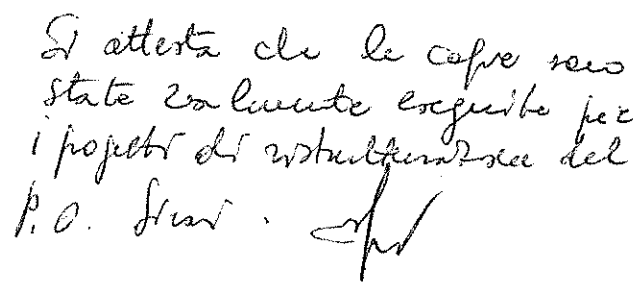 Si attesta che le copie sono
state realmente eseguite per
i progetti di ristrutturazione del
P.O.